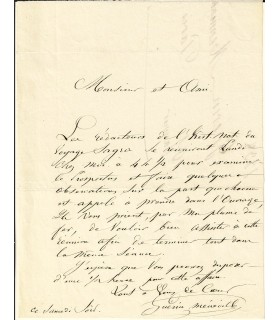 Monsieur et Ami
Les rédacteurs de l'hist. nat. du
voyage Sagra se réunirent Lundi
chez moi à 4 h ½ pour examiner
le Prospectus et faire quelques
observations sur la part que chacun
est appelé à prendre dans l'ouvrage
Ils vous prient, par ma plume de
fer, de vouloir bien assister à cette
réunion afin de terminer tout dans
la même Séance.
J'espère que vous pouvez disposer
d'une ½ heure pour cette affaire
Tout à Vous de Cœur
Guérin Méneville
Ce Samedi Soir.